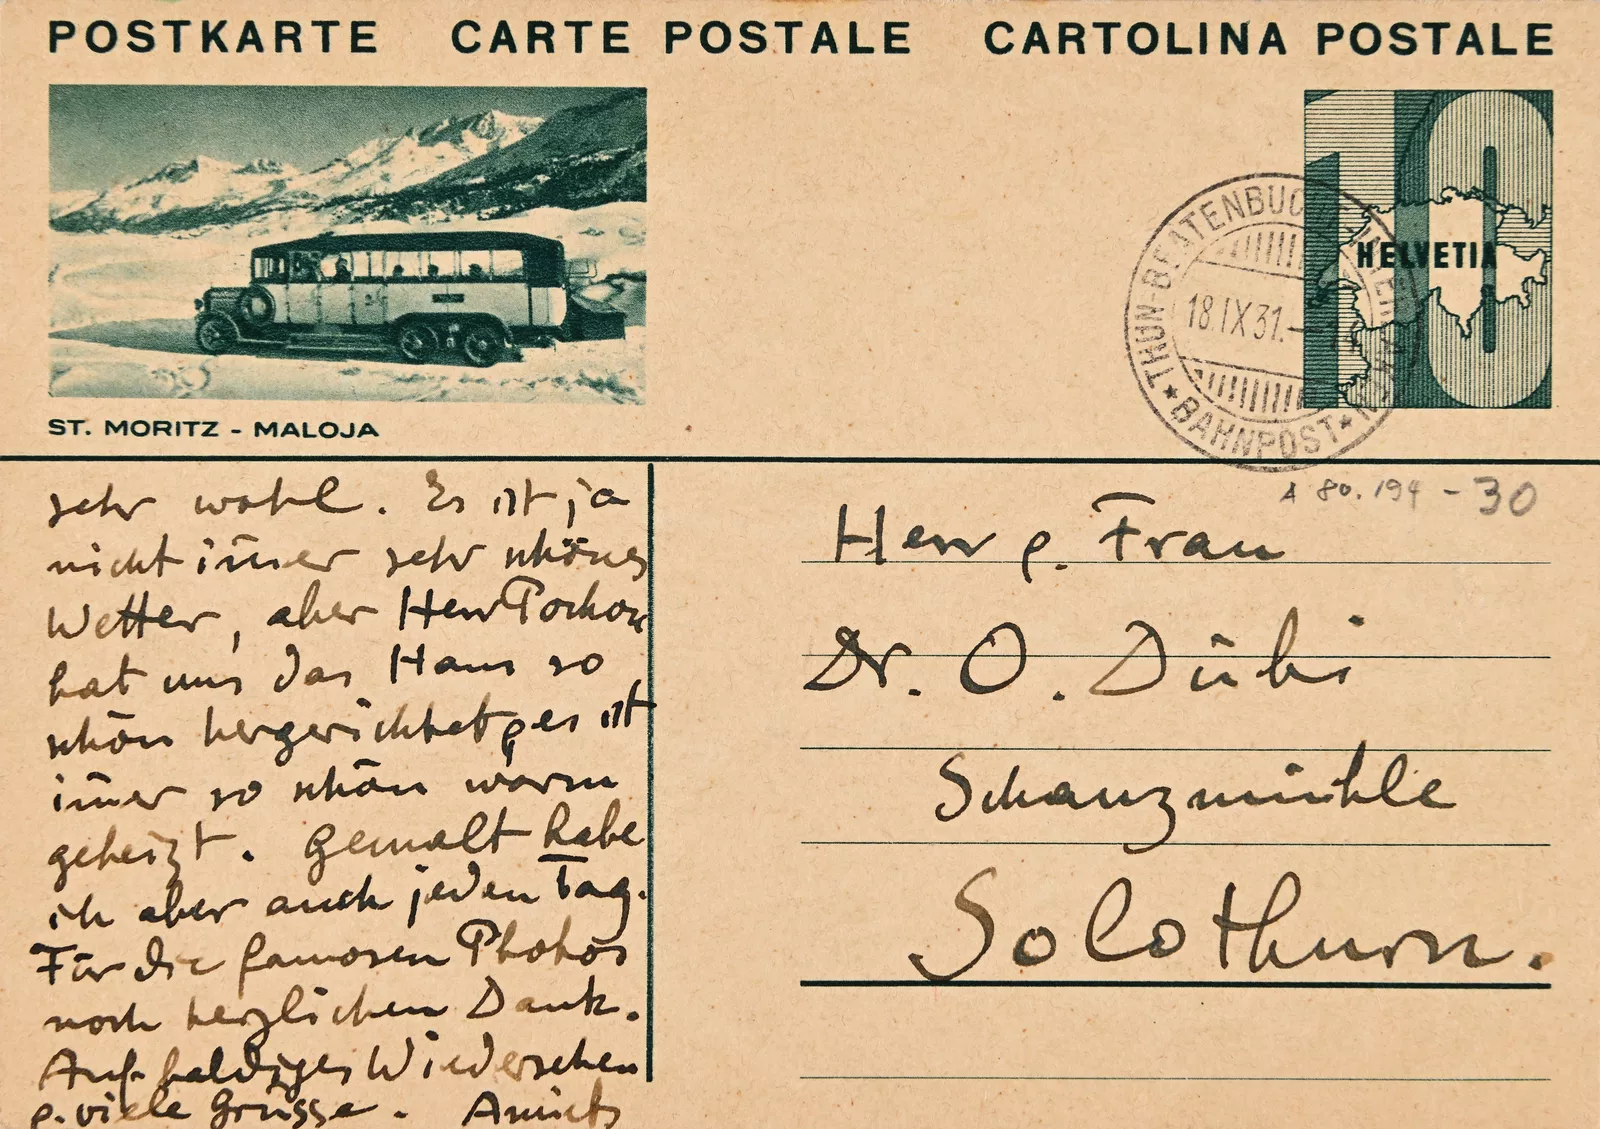 POSTKARTE CARTE POSTALE CARTOLINA POSTALE
10
HELVETIA
THUN-BEATENBUCHT-INTERLAKEN
18.IX.31.-
★ BAHNPOST ★
ST. MORITZ - MALOJA
A 80.194 - 30
sehr wohl. Es ist ja
nicht im̅er sehr schönes
Wetter, aber Herr Pochon
hat uns das Haus so
schön hergerichtet & es ist
im̅er so schön warm
geheizt. Gemalt habe
ich aber auch jeden Tag.
Für die famosen Photos
noch herzlichen Dank.
Auf baldiges Wiedersehen
&. viele Grüsse. Amiets
Herr &. Frau
Dr. O. Dübi
Schanzmühle
Solothurn.